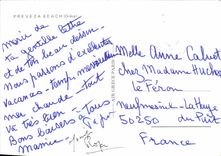 PREVEZA BEACH (Grèce)
merci de
ta gentille lettre
et de ton beau dessin.
Nous passons d'excellentes
vacances - temps merveilleux
mer chaude - tout
va très bien -
Bons baisers à tous
Mamie
Melle Anne Calvet
chez Madame
le Féron
neufmesnil - La Haye
50250 du Puit
France